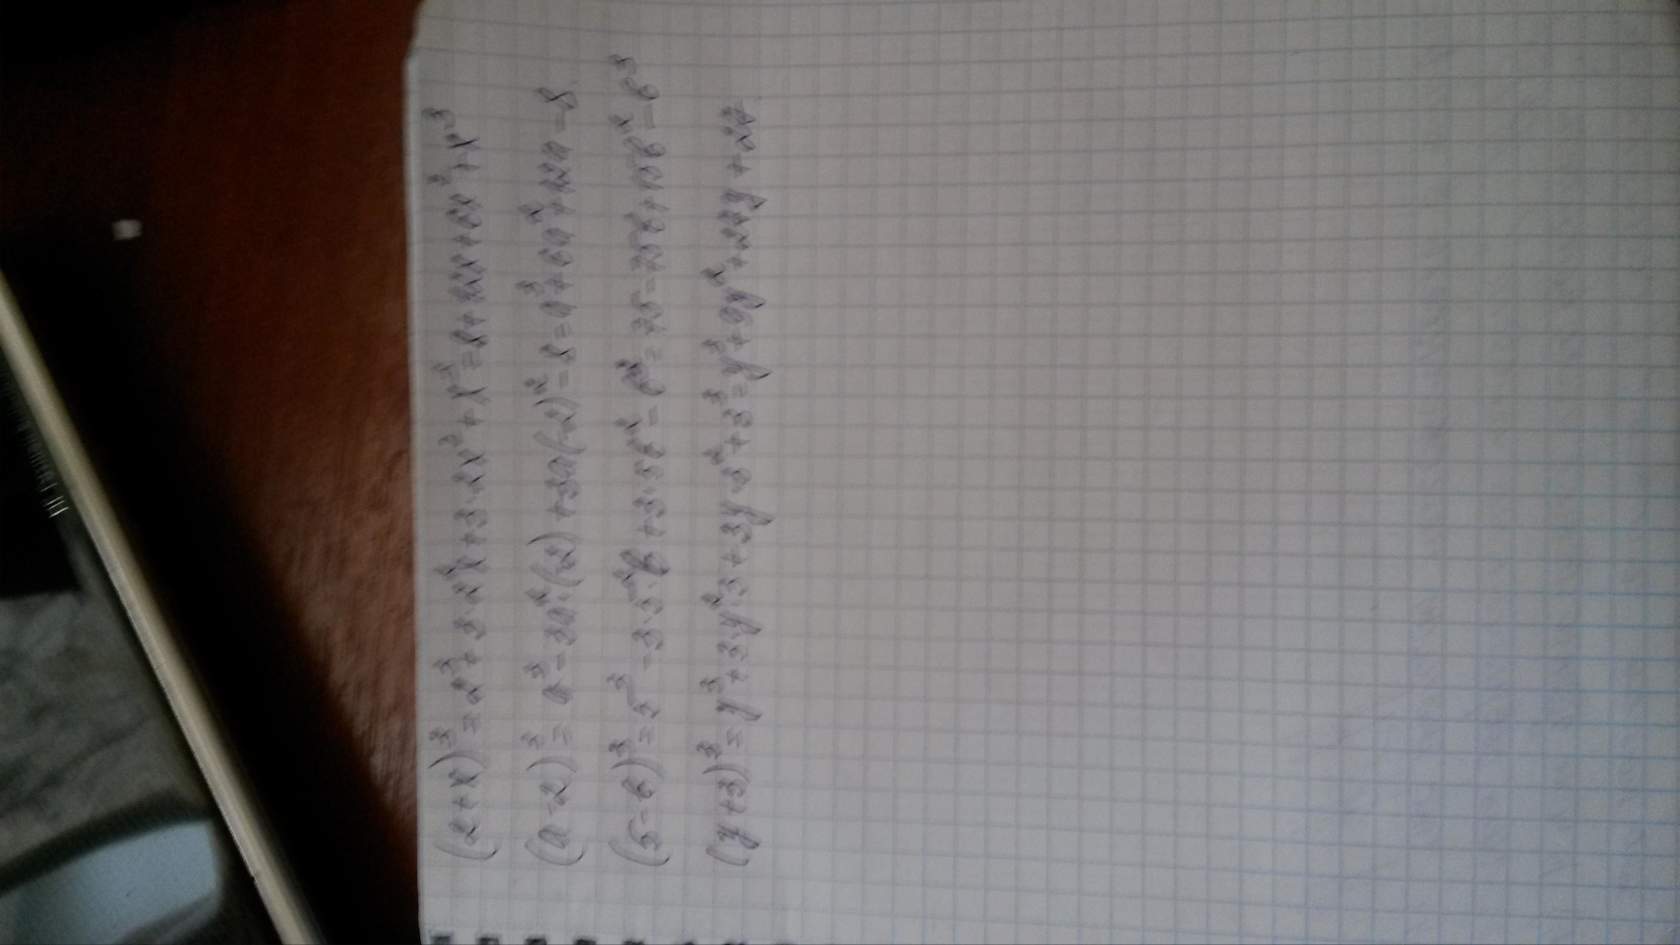 (2+x)³=2³+3·2²x+3·2x²+x³=8+12x+6x²+x³
(a-2)³=a³-3a²·(2)+3a(-2)²-8=a³+6a²+12a-8
(5-b)³=5³-3·5²·b+3·5b²-b³=75-75b+15b²=b³
(y+3)³=y³+3·y²·3+3y·3²+3³=y³+9y²+27y+27